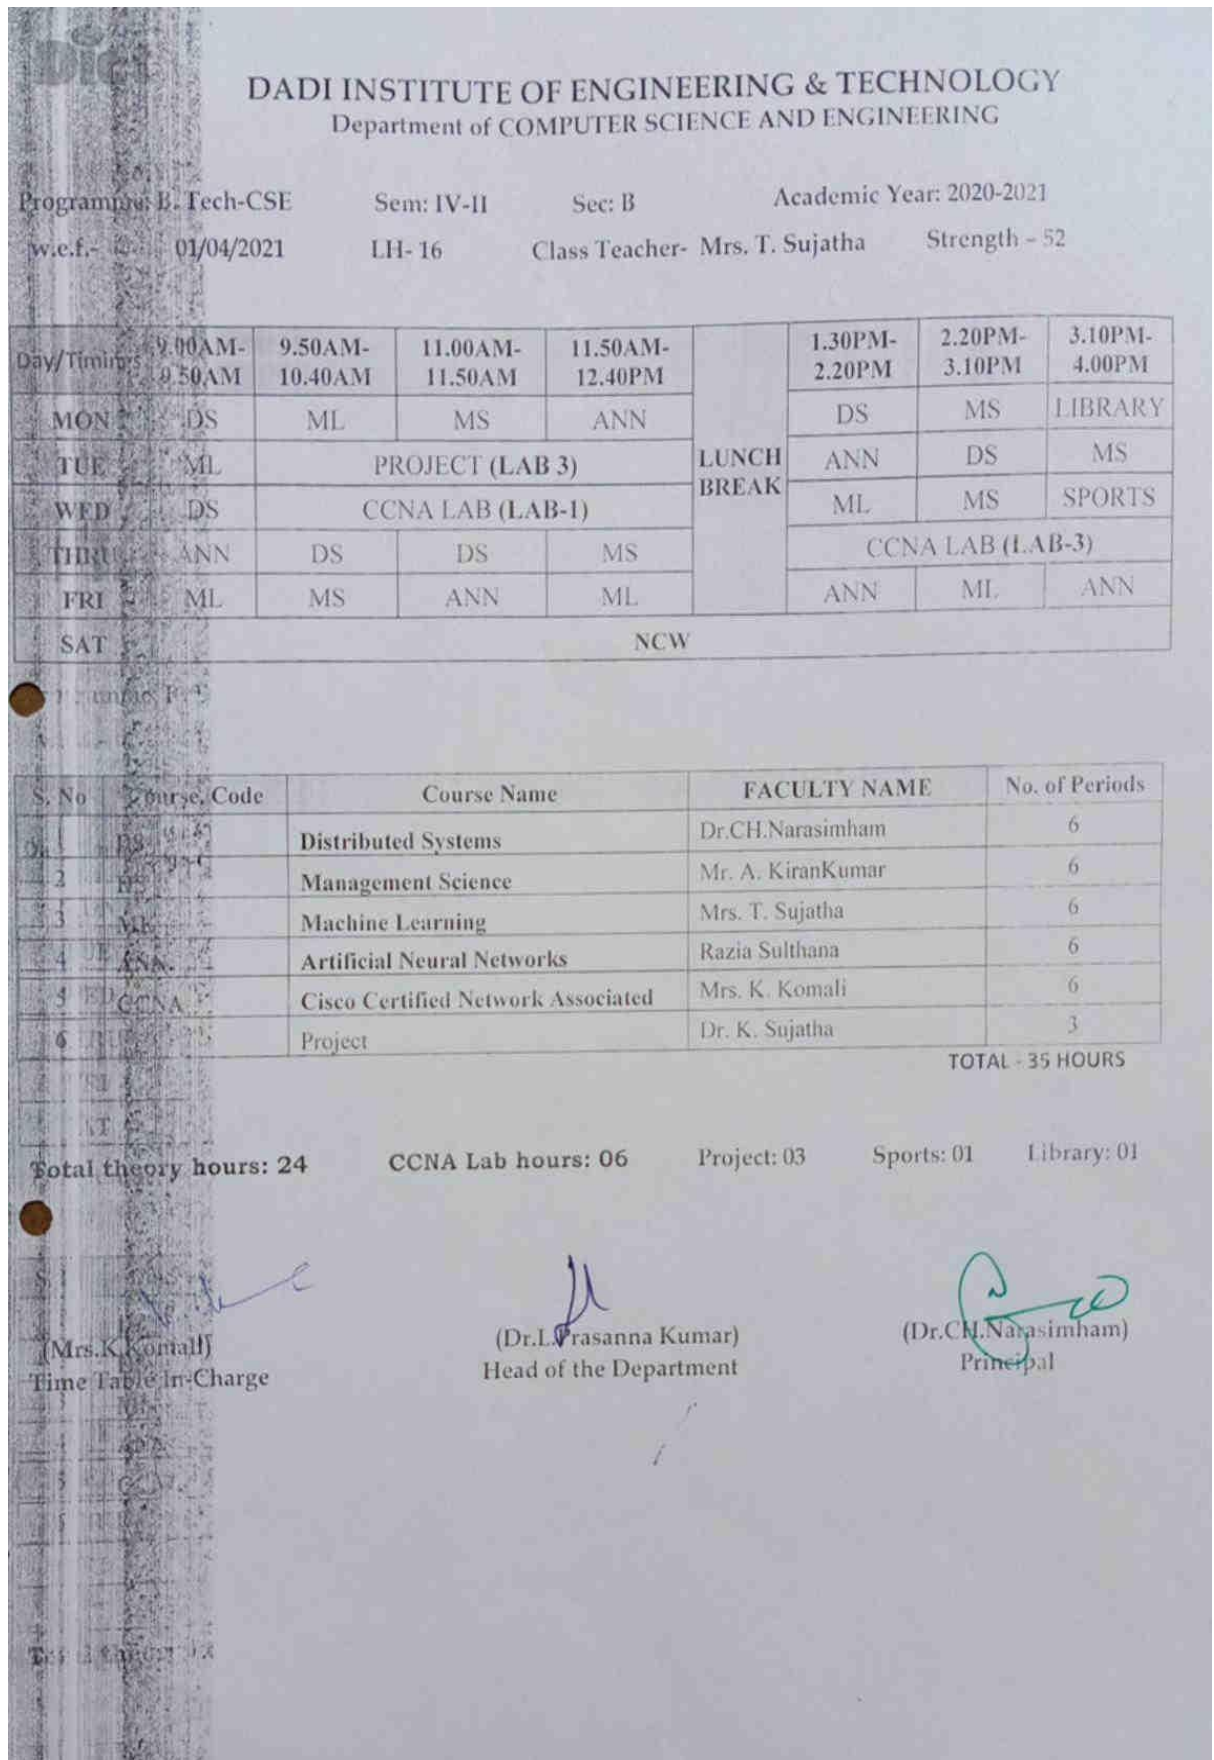 DADI INSTITUTE OF ENGINEERING & TECHNOLOGY
Department of COMPUTER SCIENCE AND ENGINEERING
Programme: B. Tech-CSE Sem: IV-II Sec: B Academic Year: 2020-2021
w.e.f.- 01/04/2021 LH- 16 Class Teacher- Mrs. T. Sujatha Strength – 52
Day/Timings 9.00AM- 9.50AM- 11.00AM- 11.50AM- 1.30PM- 2.20PM- 3.10PM-
9.50AM 10.40AM 11.50AM 12.40PM 2.20PM 3.10PM 4.00PM
MON DS ML MS ANN DS MS LIBRARY
TUE ML PROJECT (LAB 3) LUNCH ANN DS MS
WED DS CCNA LAB (LAB-1) BREAK ML MS SPORTS
THRU ANN DS DS MS CCNA LAB (LAB-3)
FRI ML MS ANN ML ANN ML ANN
SAT NCW
S. No Course Code Course Name FACULTY NAME No. of Periods
1 DS Distributed Systems Dr.CH.Narasimham 6
2 Management Science Mr. A. KiranKumar 6
3 ML Machine Learning Mrs. T. Sujatha 6
4 ANN Artificial Neural Networks Razia Sulthana 6
5 CCNA Cisco Certified Network Associated Mrs. K. Komali 6
6 Project Dr. K. Sujatha 3
TOTAL - 35 HOURS
Total theory hours: 24 CCNA Lab hours: 06 Project: 03 Sports: 01 Library: 01
(Mrs.K.Komali) (Dr.L.Prasanna Kumar) (Dr.CH.Narasimham)
Time Table In-Charge Head of the Department Principal